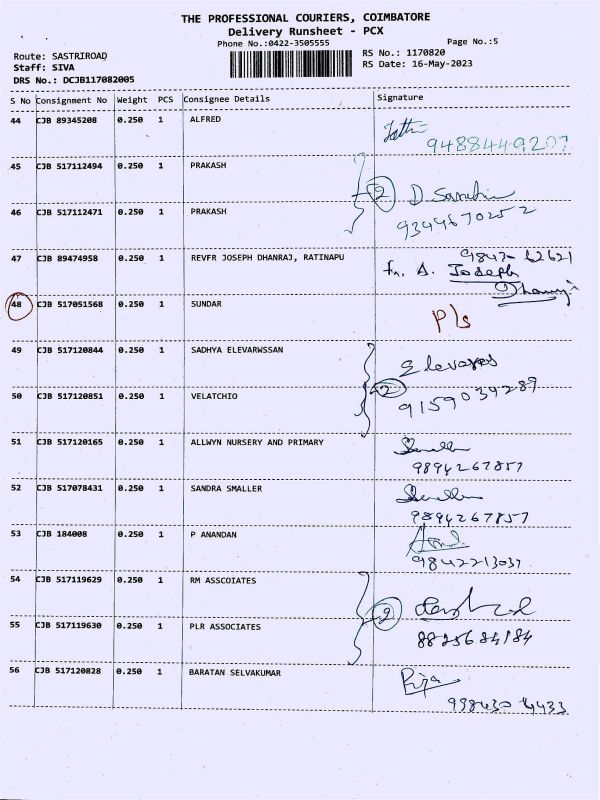 THE PROFESSIONAL COURIERS, COIMBATORE
Delivery Runsheet - PCX
Phone No.:0422-3505555
Page No.:5
Route: SASTRIROAD
RS No.: 1170820
Staff: SIVA
RS Date: 16-May-2023
DRS No.: DCJB117082005
S No Consignment No Weight PCS Consignee Details Signature
44 CJB 89345208 0.250 1 ALFRED
9488449207
45 CJB 517112494 0.250 1 PRAKASH
2 D
46 CJB 517112471 0.250 1 PRAKASH
9344670252
47 CJB 89474958 0.250 1 REVFR JOSEPH DHANRAJ, RATINAPU
Fr. A. Joseph
48 CJB 517051568 0.250 1 SUNDAR
P/s
49 CJB 517120844 0.250 1 SADHYA ELEVARWSSAN
2
50 CJB 517120851 0.250 1 VELATCHIO
9159034289
51 CJB 517120165 0.250 1 ALLWYN NURSERY AND PRIMARY
9894267857
52 CJB 517078431 0.250 1 SANDRA SMALLER
9894267857
53 CJB 184008 0.250 1 P ANANDAN
9842213037
54 CJB 517119629 0.250 1 RM ASSCOIATES
2
55 CJB 517119630 0.250 1 PLR ASSOCIATES
8825684184
56 CJB 517120828 0.250 1 BARATAN SELVAKUMAR